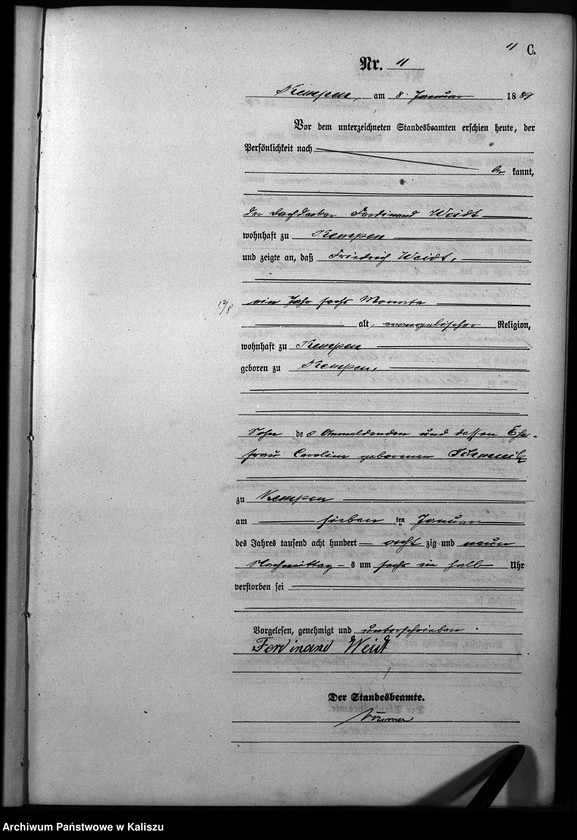 11 C.
Nr. 11
Kempen, am 8. Januar 1889
Vor dem unterzeichneten Standesbeamten erschien heute, der
Persönlichkeit nach
be kannt,
der Dachdecker Ferdinand Weidt
wohnhaft zu Kempen
und zeigte an, daß Friedrich Weidt,
ein Jahr sechs Monate
alt, evangelischer Religion,
wohnhaft zu Kempen
geboren zu Kempen,
Sohn des Anmeldenden und dessen Ehe-
frau Caroline geborenen
zu Kempen
am sieben ten Januar
des Jahres tausend acht hundert acht zig und neun
Nachmittags um sechs ein halb Uhr
verstorben sei
Vorgelesen, genehmigt und unterschrieben.
Ferdinand Weidt
Der Standesbeamte.
Archiwum Państwowe w Kaliszu